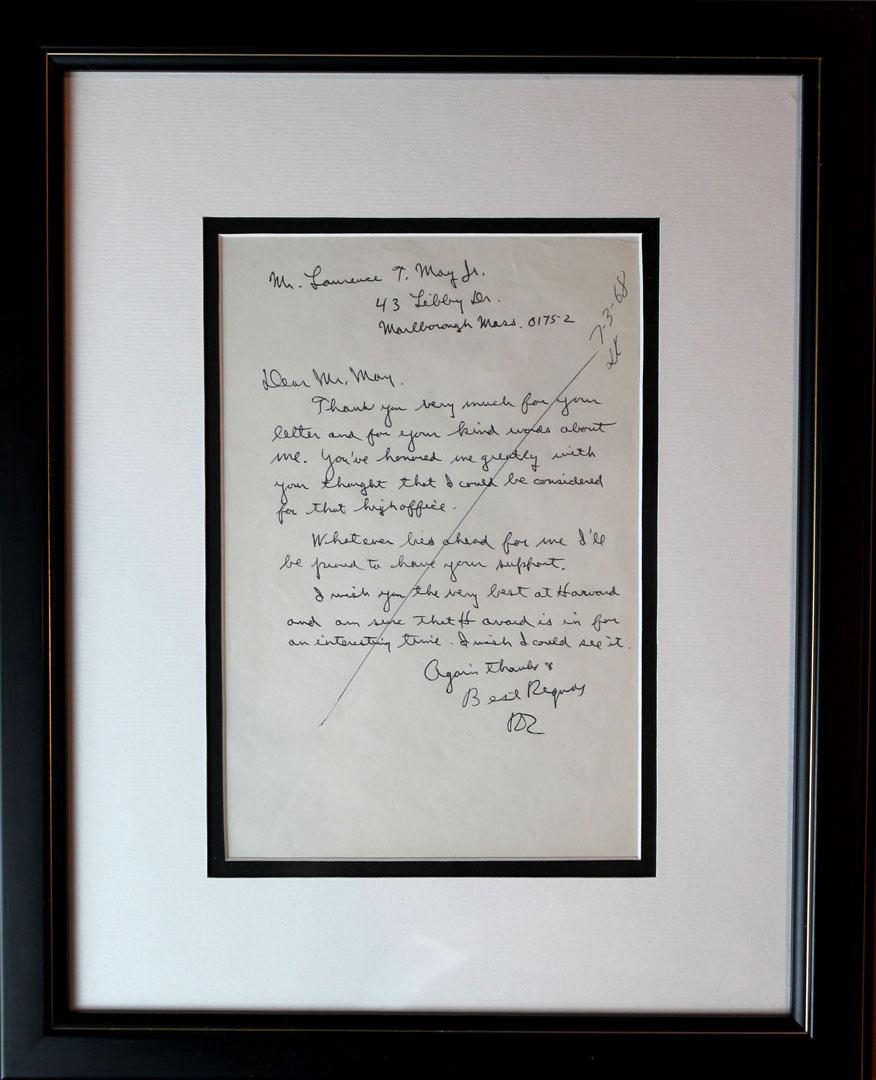 Mr. Laurence T. May Jr.
43 Libby Dr.
Marlborough Mass. 01752
7-3-68
Dear Mr. May.
Thank you very much for your
letter and for your kind words about
me. You've honored me greatly with
your thought that I could be considered
for that high office.
Whatever lies ahead for me I'll
be proud to have your support.
I wish you the very best at Harvard
and am sure that Harvard is in for
an interesting time. I wish I could see it.
Again thanks &
Best Regards
RR